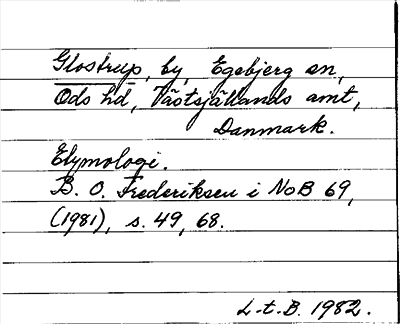 Glostrup, by, Egebjerg sn,
Ods hd, Västsjällands amt,
Danmark.
Etymologi.
B. O. Frederiksen i NoB 69,
(1981), s. 49, 68.
L-t.B. 1982.